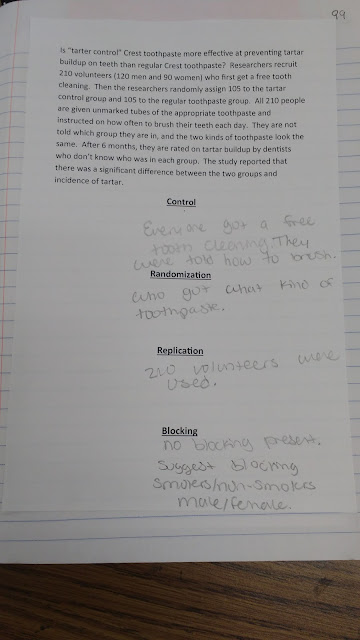 99
Is “tarter control” Crest toothpaste more effective at preventing tartar
buildup on teeth than regular Crest toothpaste? Researchers recruit
210 volunteers (120 men and 90 women) who first get a free tooth
cleaning. Then the researchers randomly assign 105 to the tartar
control group and 105 to the regular toothpaste group. All 210 people
are given unmarked tubes of the appropriate toothpaste and
instructed on how often to brush their teeth each day. They are not
told which group they are in, and the two kinds of toothpaste look the
same. After 6 months, they are rated on tartar buildup by dentists
who don’t know who was in each group. The study reported that
there was a significant difference between the two groups and
incidence of tartar.
Control
Everyone got a free
tooth cleaning. They
were told how to brush.
Randomization
who got what kind of
toothpaste.
Replication
210 volunteers were
used.
Blocking
no blocking present.
suggest blocking
smokers/non-smokers
male/female.